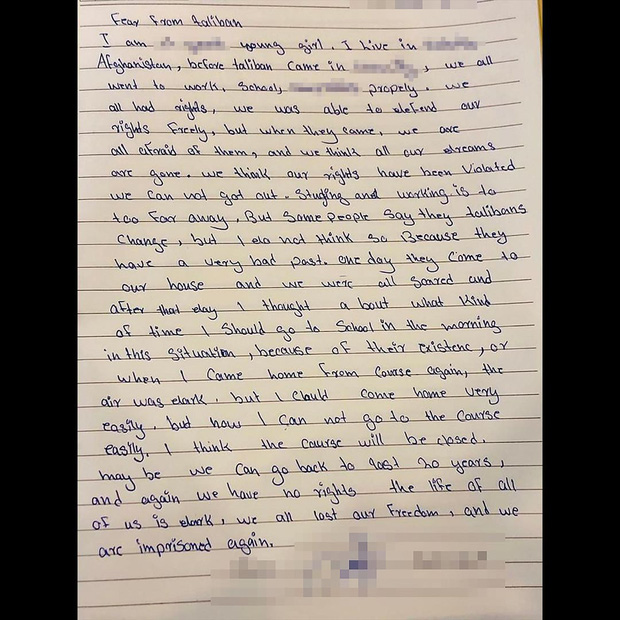 Fear from taliban
I am young girl. I live in
Afghanistan, before taliban came in , we all
went to work, School, propely. we
all had rights, we was able to defend our
rights freely, but when they came, we are
all afraid of them, and we think all our dreams
are gone. we think our rights have been Violated
we can not got out. Studing and working is to
too far away, But Some people Say they talibans
Change, but I do not think so Because they
have a very bad past. one day they Come to
our house and we were all Scared and
after that day I thought a bout what kind
of time I Should go to School in the morning
in this Situation, because of their existenc, or
when I Came home from Course again, the
air was dark. but I Cbuld come home very
easily, but now I can not go to the Course
easily. I think the Course will be closed.
may be we can go back to last 20 years,
and again we have no rights the life of all
of us is dark, we all lost our freedom, and we
are imprisoned again.